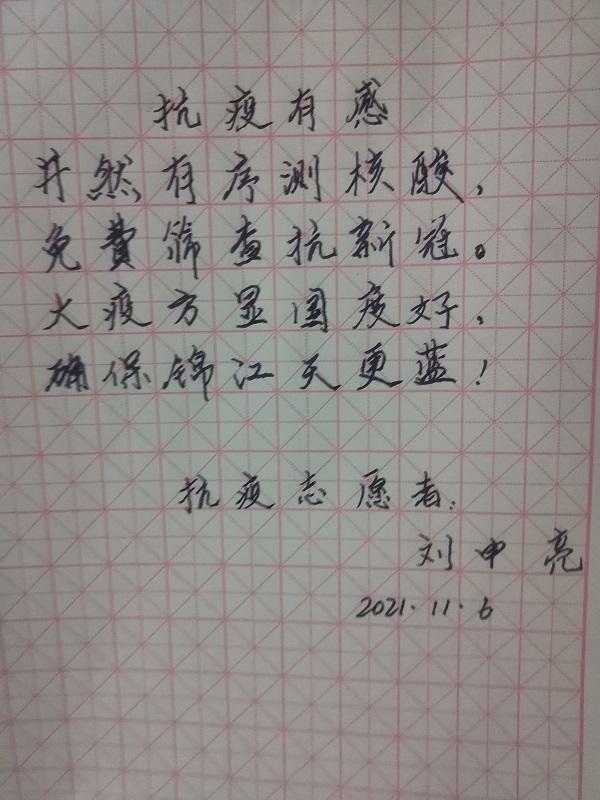 抗疫有感
井然有序测核酸，
免費筛查抗新冠。
大疫方显国度好，
确保锦江天更蓝！
抗疫志愿者：
刘中亮
2021.11.6